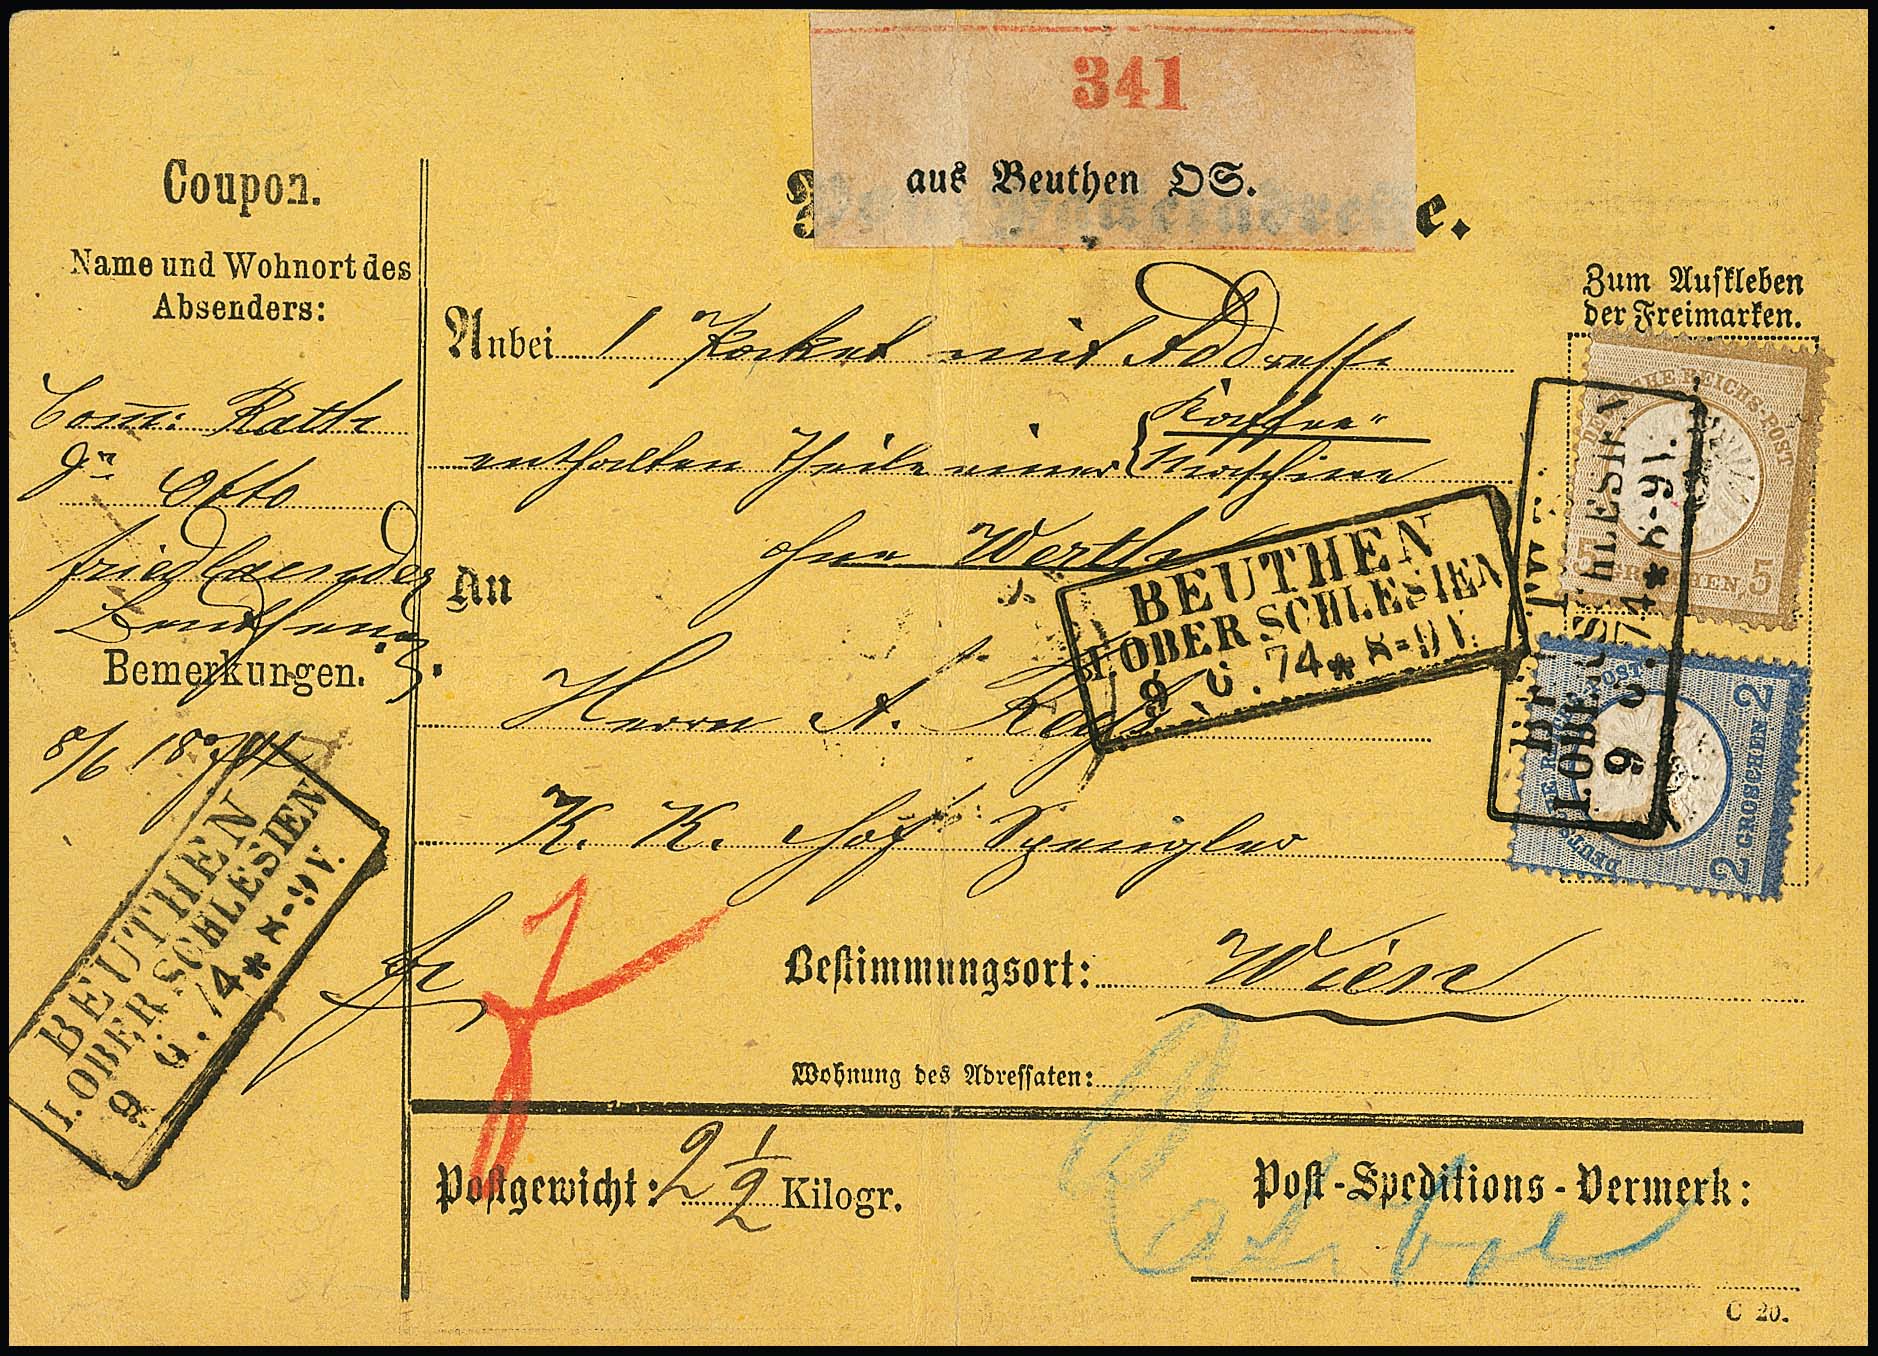 341
aus Beuthen OS.
e.
Coupon.
Name und Wohnort des
Absenders:
Com: Rath
Otto
Friedlaender
Bemerkungen.
8/6 1874
BEUTHEN
I. OBER SCHLESIEN
9 6. 74 * 8-9 V.
Anbei 1 Packet mit Addresse
Kaffee-
enthalten Theile einer Maschine
ohne Werth
An
BEUTHEN
I. OBER SCHLESIEN
9 6. 74 * 8-9 V.
Herrn A.
K. K. Hof Spengler
Bestimmungsort: Wien
Wohnung des Adressaten:
Postgewicht: 2 1/2 Kilogr.
Post-Speditions-Vermerk:
C 20.
Zum Aufkleben
der Freimarken.
DEUTSCHE REICHS-POST
5 GROSCHEN 5
BEUTHEN
I. OBER SCHLESIEN
9 6. 74 * 8-9 V.
DEUTSCHE REICHS-POST
2 GROSCHEN 2